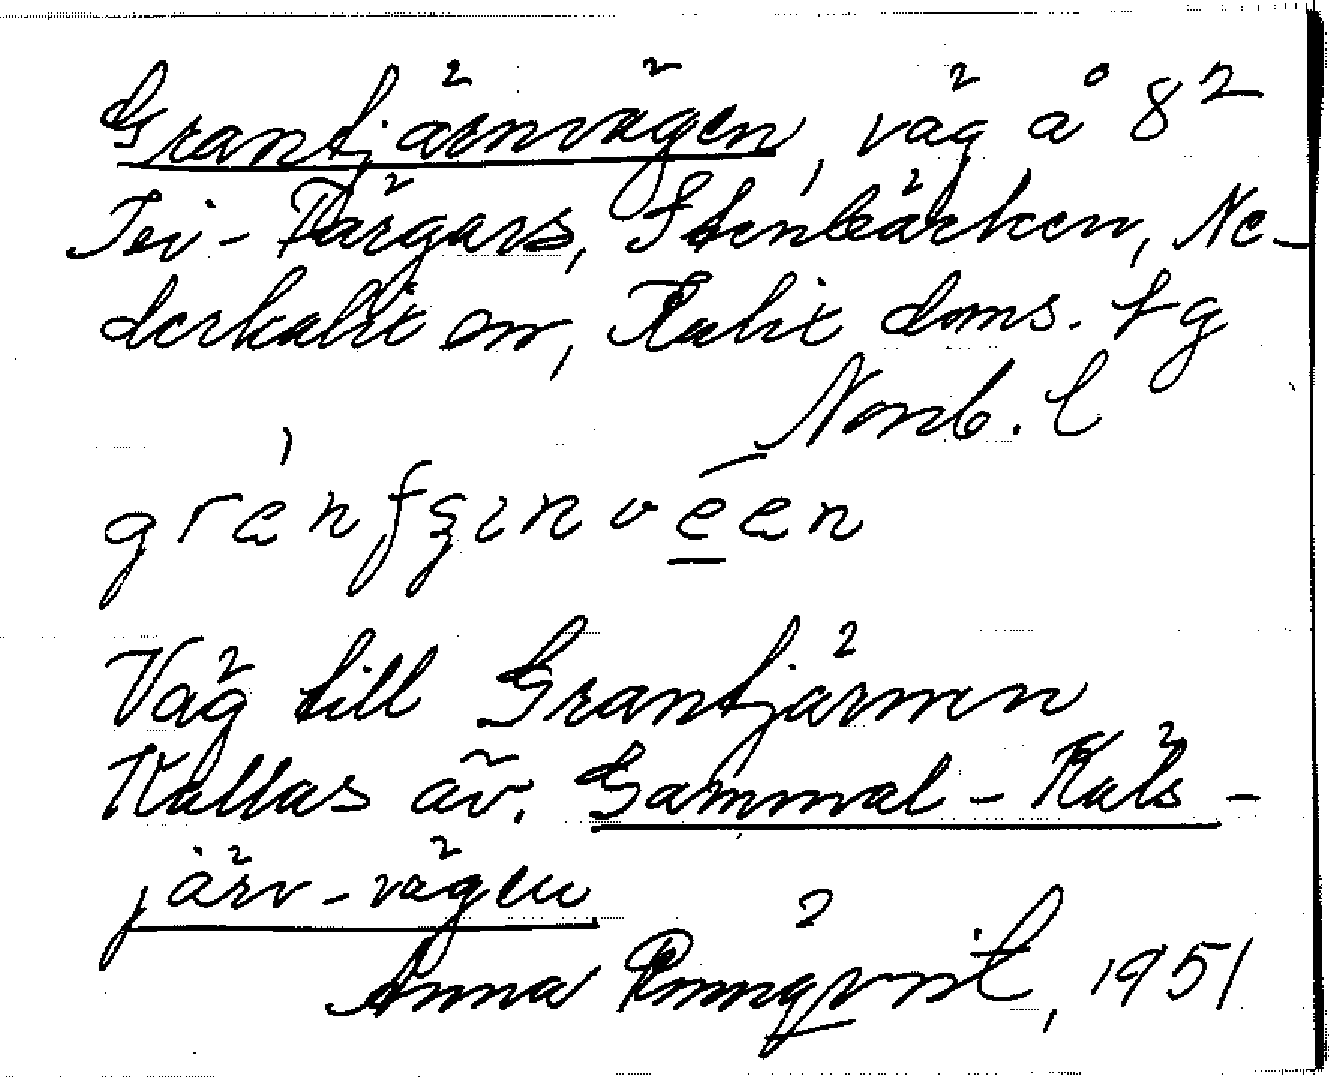 Grantjärnvägen, väg å 8²
Tei-Färgars, Stenbäcken, Ne-
derkalix sn, Kalix doms. tg
Norrb. l
Väg till Grantjärnen
Kallas äv. Gammal-Käls-
järv-vägen
Anna Rönnqvist, 1951